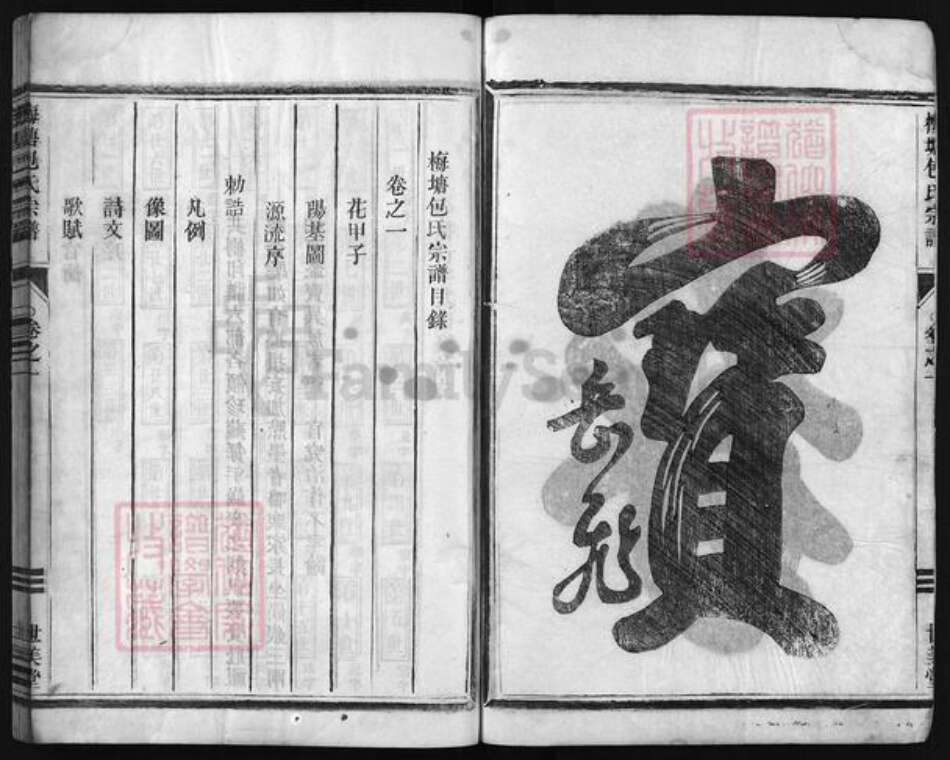 梅塘包氏宗譜
卷之一
世美堂
寶
岳飛
梅塘包氏宗譜目錄
卷之一
花甲子
陽基圖
源流序
勅誥
凡例
像圖
詩文
歌賦
梅塘包氏宗譜
卷之一
世美堂
FamilySearch